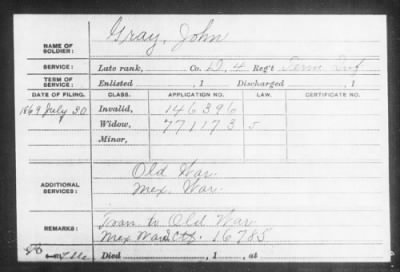 NAME OF SOLDIER: Gray, John
SERVICE: Late rank, Co. D, 4 Reg't Tenn Inf
TERM OF SERVICE: Enlisted , 1 Discharged , 1
DATE OF FILING. CLASS. APPLICATION NO. LAW. CERTIFICATE NO.
1869 July 30 Invalid, 146396
Widow, 771173 S
Minor,
ADDITIONAL SERVICES: Old War
Mex. War.
REMARKS: Tran to Old War
Mex War Ctf. 16785
Died , 1 , at